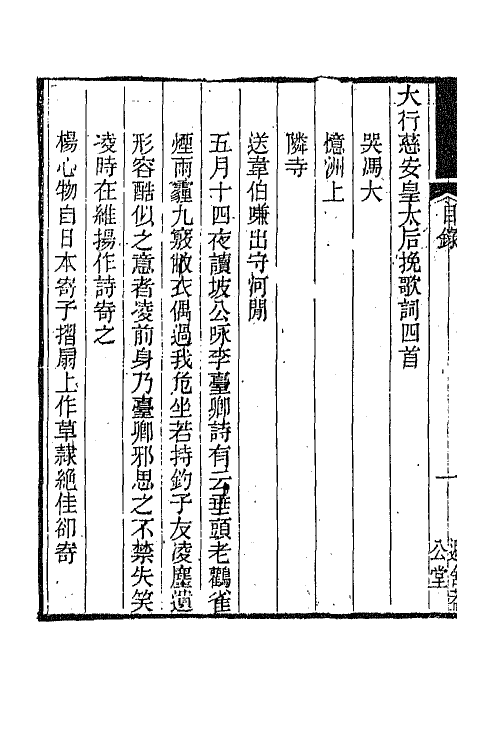 大行慈安皇太后挽歌詞四首
哭馮大
憶洲上
隣寺
送韋伯嗛出守何閒
五月十四夜讀坡公咏李臺卿詩有云垂頭老鸛雀
煙雨霾九竅敝衣偶過我危坐若持釣予友凌塵遺
形容酷似之意者凌前身乃臺卿邪思之不禁失笑
凌時在維揚作詩寄之
楊心物自日本寄予摺扇上作草隷絶佳卻寄
目錄
一
公堂